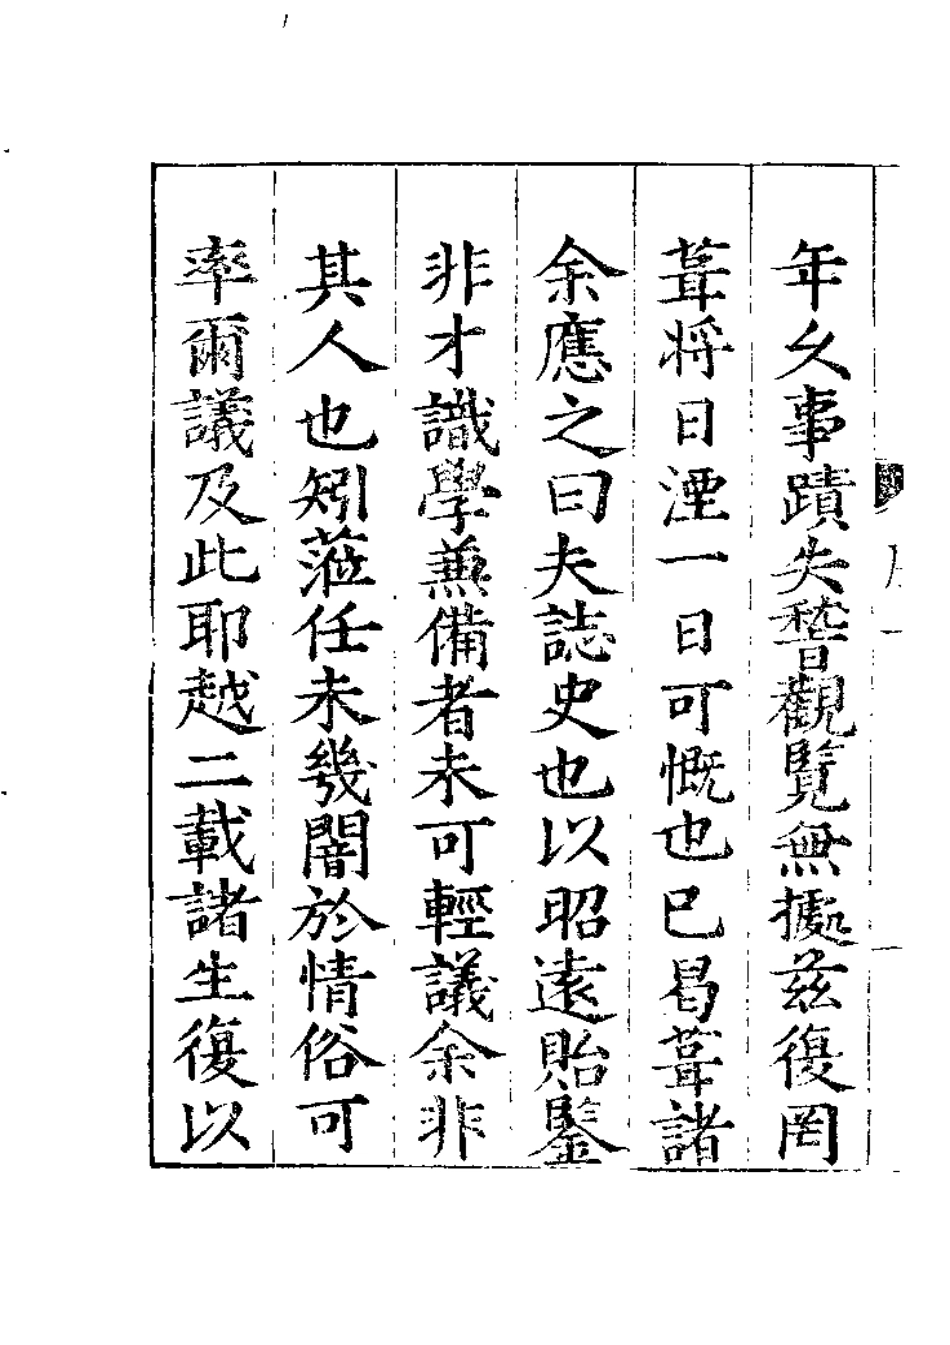 年久事蹟失稽觀覽無據兹復罔
葺将日湮一日可慨也已曷葺諸
余應之曰夫誌史也以昭遠貽鑒
非才識學兼備者未可輕議余非
其人也矧蒞任未幾闇於情俗可
率爾議及此耶越二載諸生復以